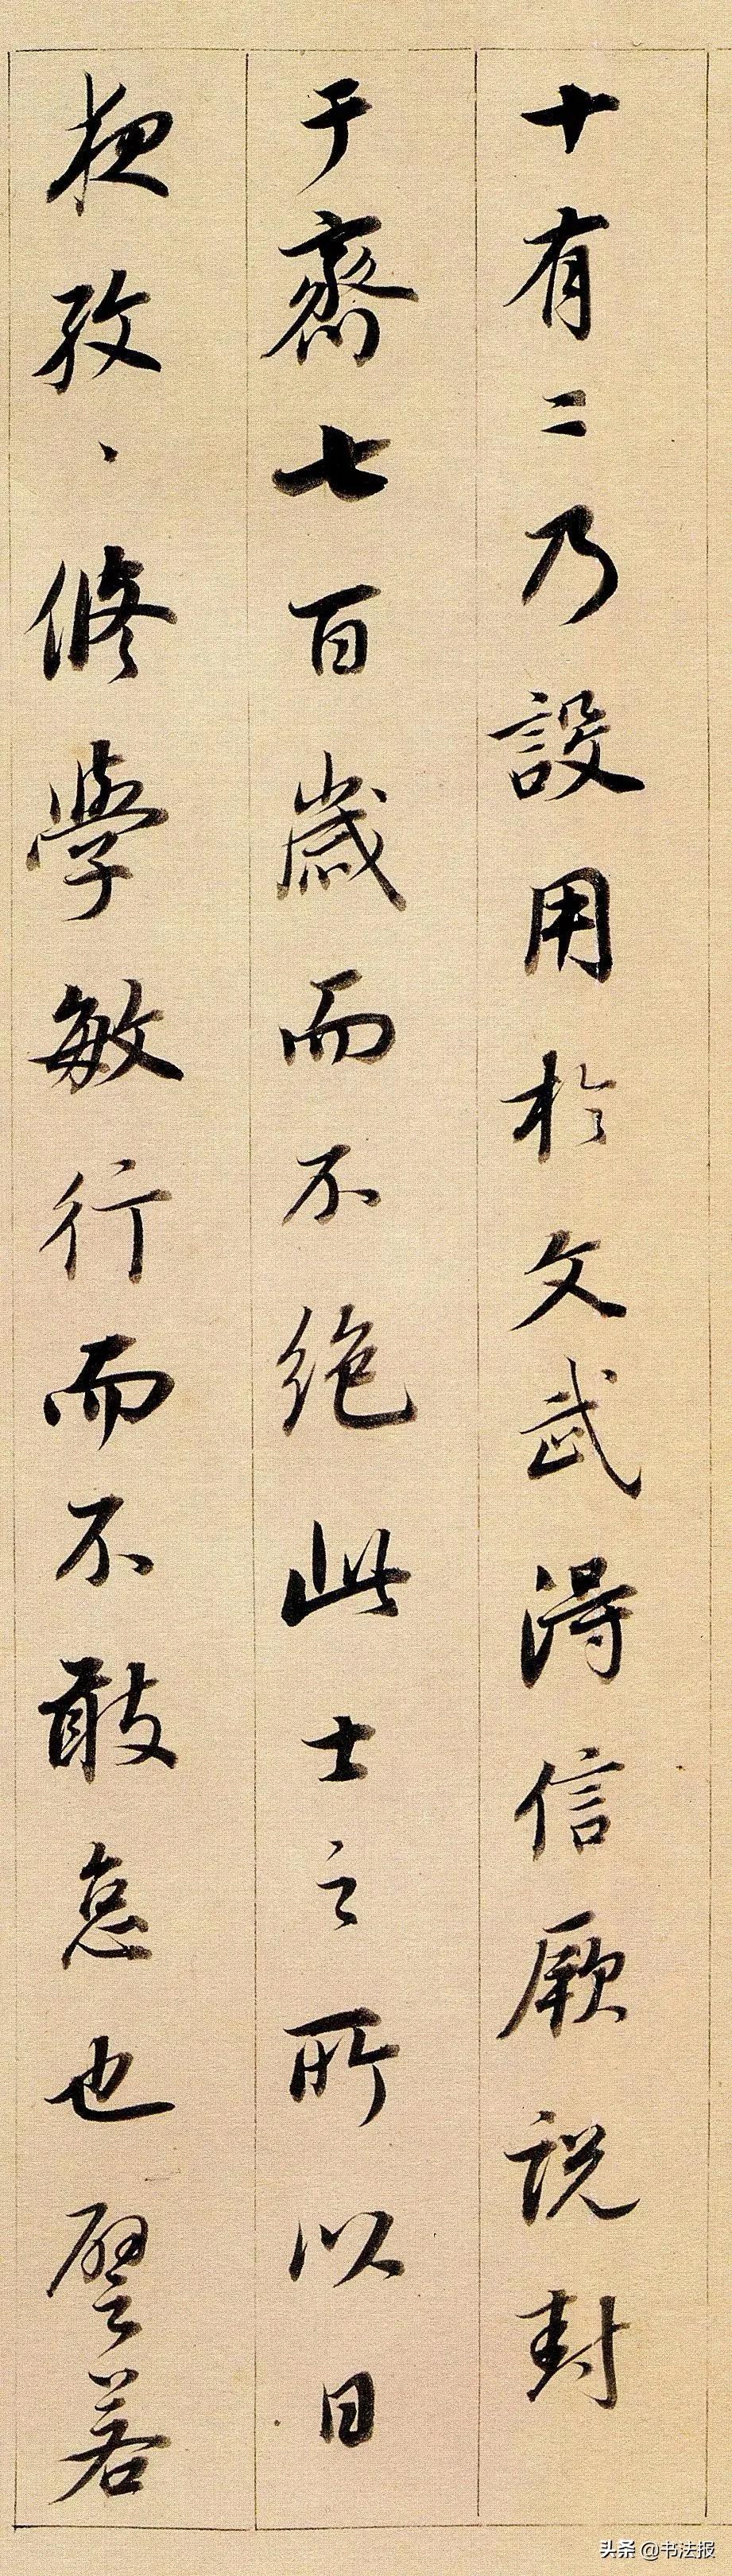 十有二乃設用於文武得信厥説封
于齊七百歲而不絕此士之所以日
夜孜、修學敏行而不敢怠也譬若
头条 @书法报